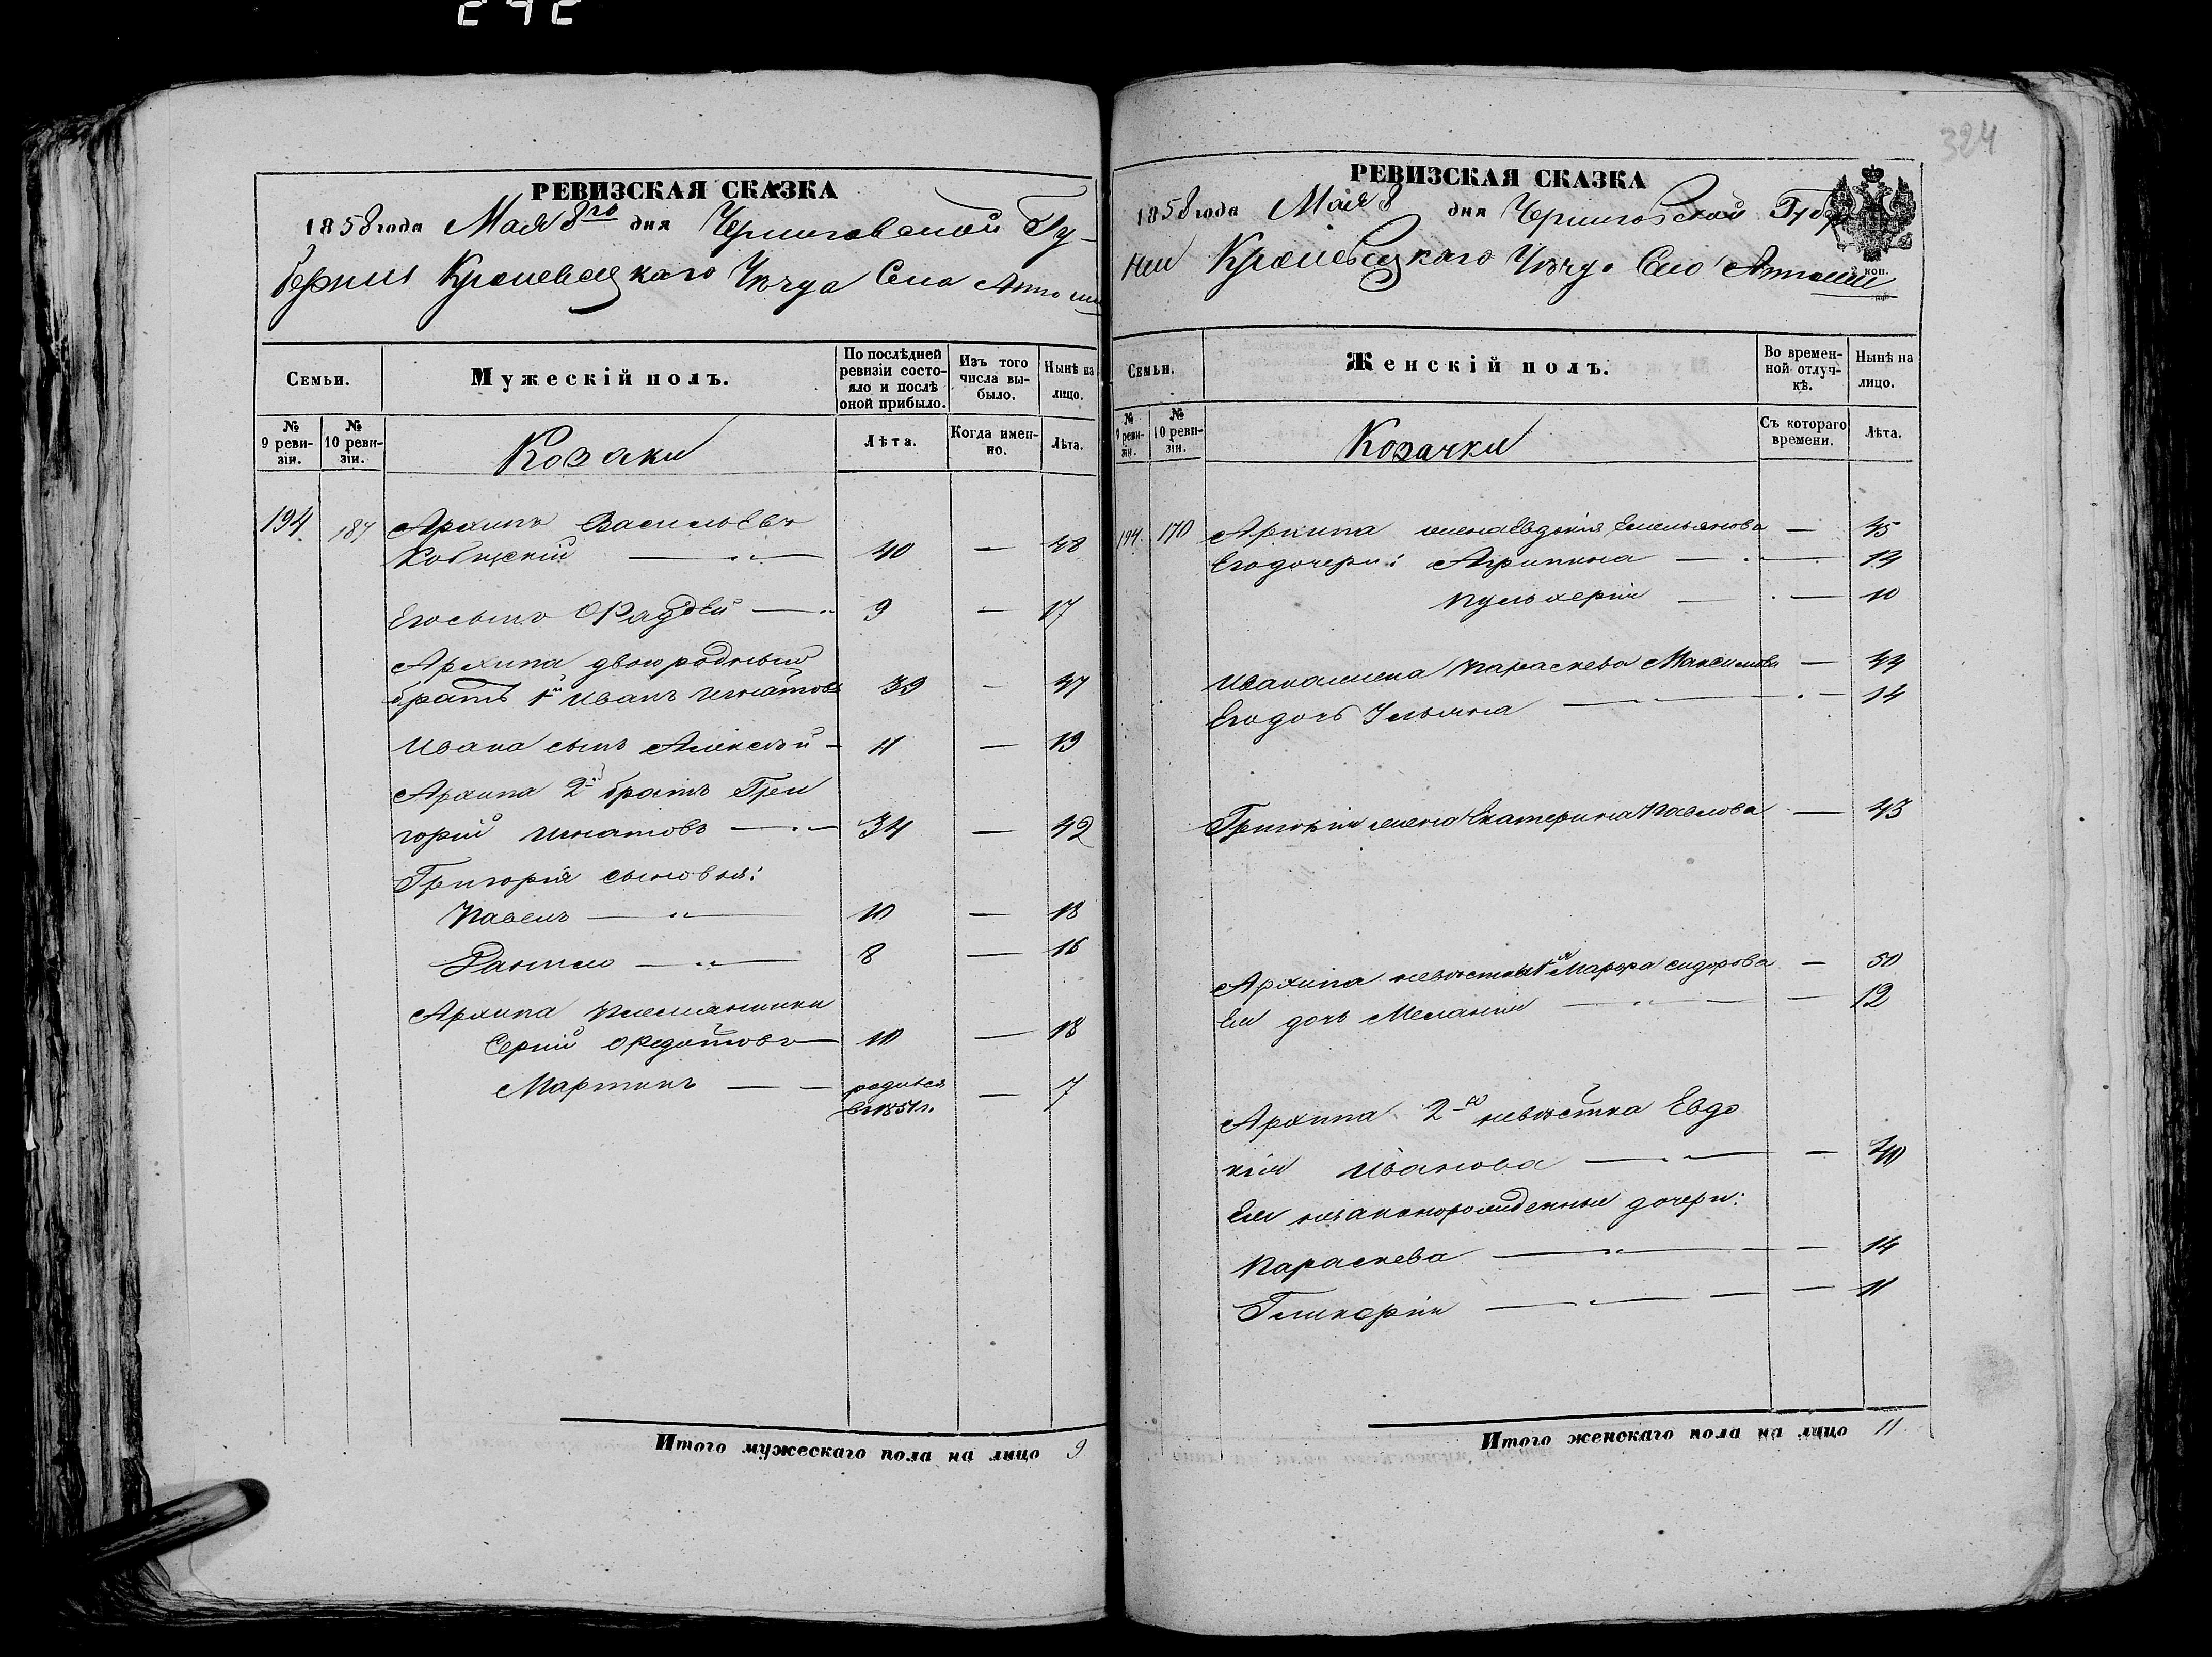 РЕВИЗСКАЯ СКАЗКА
1858 года Мая 8го дня Черниговской Гу-
берніи Кролевецкаго Уѣзда Села
Семьи.
Мужескій полъ.
По послѣдней ревизіи состояло и послѣ оной прибыло.
Изъ того числа выбыло.
Нынѣ на лицо.
№ 9 ревизіи.
№ 10 ревизіи.
Козаки
Лѣта.
Когда именно.
Лѣта.
194 187 Архипъ Васильевъ
40 — 48
Его сынъ Фаддей — 9 — 17
Архипа двоюродный
братъ 1й Иванъ Игнатовъ 39 — 47
Ивана сынъ Алексѣй — 11 — 19
Архипа 2й братъ Гри
горій Игнатовъ — 34 — 42
Григорія сыновья:
Павелъ — 10 — 18
Данило — 8 — 16
Архипа племянники
Сергій Федотовъ — 10 — 18
Мартинъ — родился — 7
въ 1851 г.
Итого мужескаго пола на лицо 9
324
РЕВИЗСКАЯ СКАЗКА
1858 года Мая 8 дня Черниговской Губер
ніи Кролевецкаго Уѣзда Села
коп.
Семьи.
Женскій полъ.
Во временной отлучкѣ.
Нынѣ на лицо.
№ 9 ревизіи.
№ 10 ревизіи.
Козачки
Съ котораго времени.
Лѣта.
194 170 Архипа жена Евдокія Емельянова — 45
Его дочери: Агрипина — 14
Пульхерія — 10
Ивана жена Параскева Максимова — 44
Его дочь Ульяна — 14
Григорія жена Екатерина Павлова — 43
Архипа невѣстка 1я Марфа Сидорова — 50
Ея дочь Меланія — 12
Архипа 2я невѣстка Евдо
кія Иванова — 40
Ея незаконорожденные дочери:
Параскева — 14
Гликерія — 11
Итого женскаго пола на лицо 11